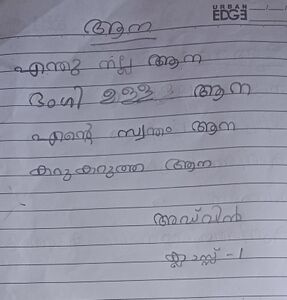 URBAN
EDGE
ആന
എന്തു നല്ല ആന
ഭംഗി ഉള്ള ആന
എന്റെ സ്വന്തം ആന
കറുകറുത്ത ആന
അഡ്വിൻ
ക്ലാസ്സ് -1